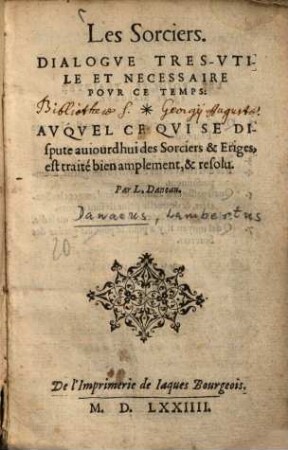 Les Sorciers.
DIALOGVE TRES-VTI-
LE ET NECESSAIRE
POVR CE TEMPS:
Bibliothecæ S. * Georgij Augustæ.
AVQVEL CE QVI SE DI-
spute auiourdhui des Sorciers & Eriges,
est traité bien amplement, & resolu.
Par L. Daneau.
Danaeus, Lambertus
20
De l'Imprimerie de Iaques Bourgeois.
M. D. LXXIIII.